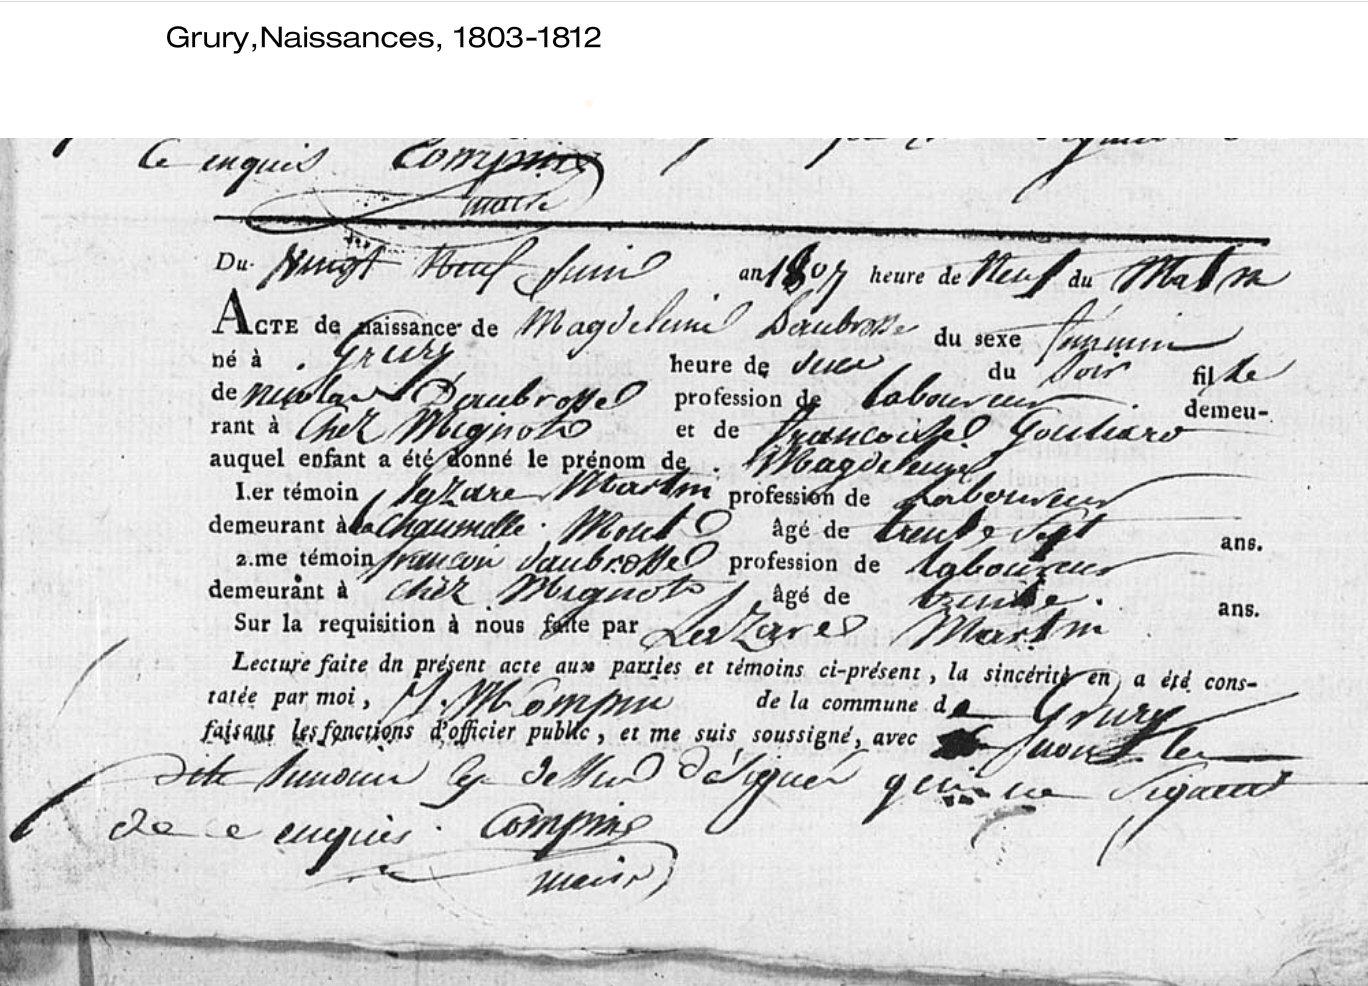 Grury,Naissances, 1803-1812
Ce enquis Compin
maire
Du vingt Neuf Juin an 1807 heure de Neuf du Matin
ACTE de naissance de Magdeleine Daubrosse du sexe feminin
né à Grury heure de du Soir fille
de Nicolas Daubrosse profession de laboureur demeu-
rant à Chez Mignot et de francoise
auquel enfant a été donné le prénom de Magdeleine
I.er témoin Lazare Martin profession de Laboureur
demeurant à la Chaumelle Mont âgé de trente Sept ans.
2.me témoin francois Daubrosse profession de laboureur
demeurant à chéz Mignot âgé de trente ans.
Sur la requisition à nous faite par Lazare Martin
Lecture faite dn présent acte aux parties et témoins ci-présent, la sincérité en a été cons-
tatée par moi, Compin de la commune de Grury
faisant les fonctions d'officier public, et me suis soussigné, avec les
dits temoins cy dessus désignés qui ne Signent
de ce enquis. Compin
maire